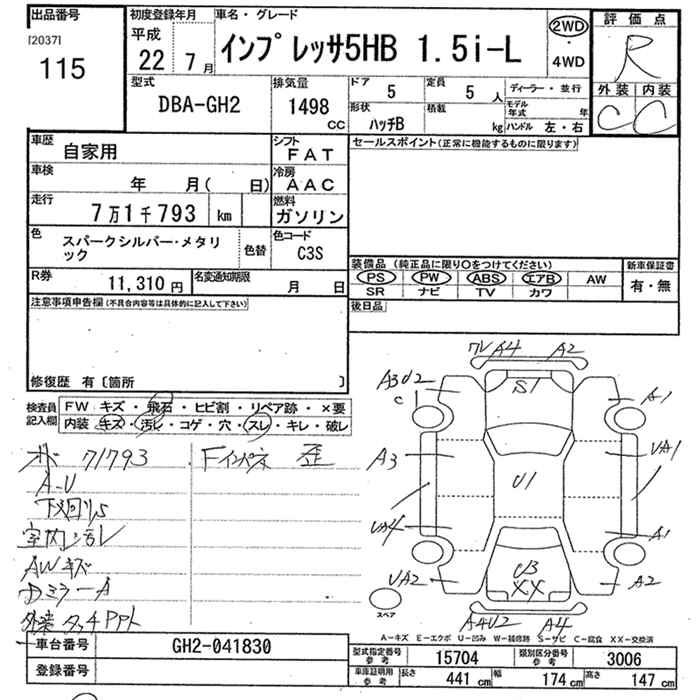 出品番号
[2037]
115
初度登録年月
平成
22年7月
車名・グレード
インプレッサ5HB 1.5i-L
2WD
・
4WD
評価点
R
外装 内装
C C
型式
DBA-GH2
排気量
1498
CC
ドア
5
定員
5人
ディーラー・並行
形状
ハッチB
積載
kg
モデル年式 年
ハンドル 左・右
車歴
自家用
シフト
FAT
車検
年 月( 日)
冷房
AAC
走行
7万1千793 km
燃料
ガソリン
色
スパークシルバー・メタリック
色替
色コード
C3S
R券
11,310円
名変通知期限
月 日
セールスポイント(正常に機能するものに限ります)
装備品 (純正品に限り○をつけてください)
新車保証書
PS PW ABS エアB AW
有・無
SR ナビ TV カワ
後日品
注意事項申告欄(不具合内容等は具体的に記入して下さい)
修復歴 有〔箇所 〕
検査員記入欄
FW キズ・飛石・ヒビ割・リペア跡・×要
内装 キズ・汚レ・コゲ・穴・スレ・キレ・破レ
71793
Fインパネ 歪
A-U
下廻りS
室内汚レ
AWキズ
DミラーA
外装タッチPPト
ワレ A4 A2
A3U2
C
S1
A1
A3
U1
UA1
UA4
A1
UA2
UB
XX
A2
A4U2 A4
スペア
A-キズ E-エクボ U-凹み W-補修跡 S-サビ C-腐食 XX-交換済
車台番号
GH2-041830
登録番号
型式指定番号
参考
15704
類別区分番号
参考
3006
車庫証明用
参考
長さ
441 cm
幅
174 cm
高さ
147 cm